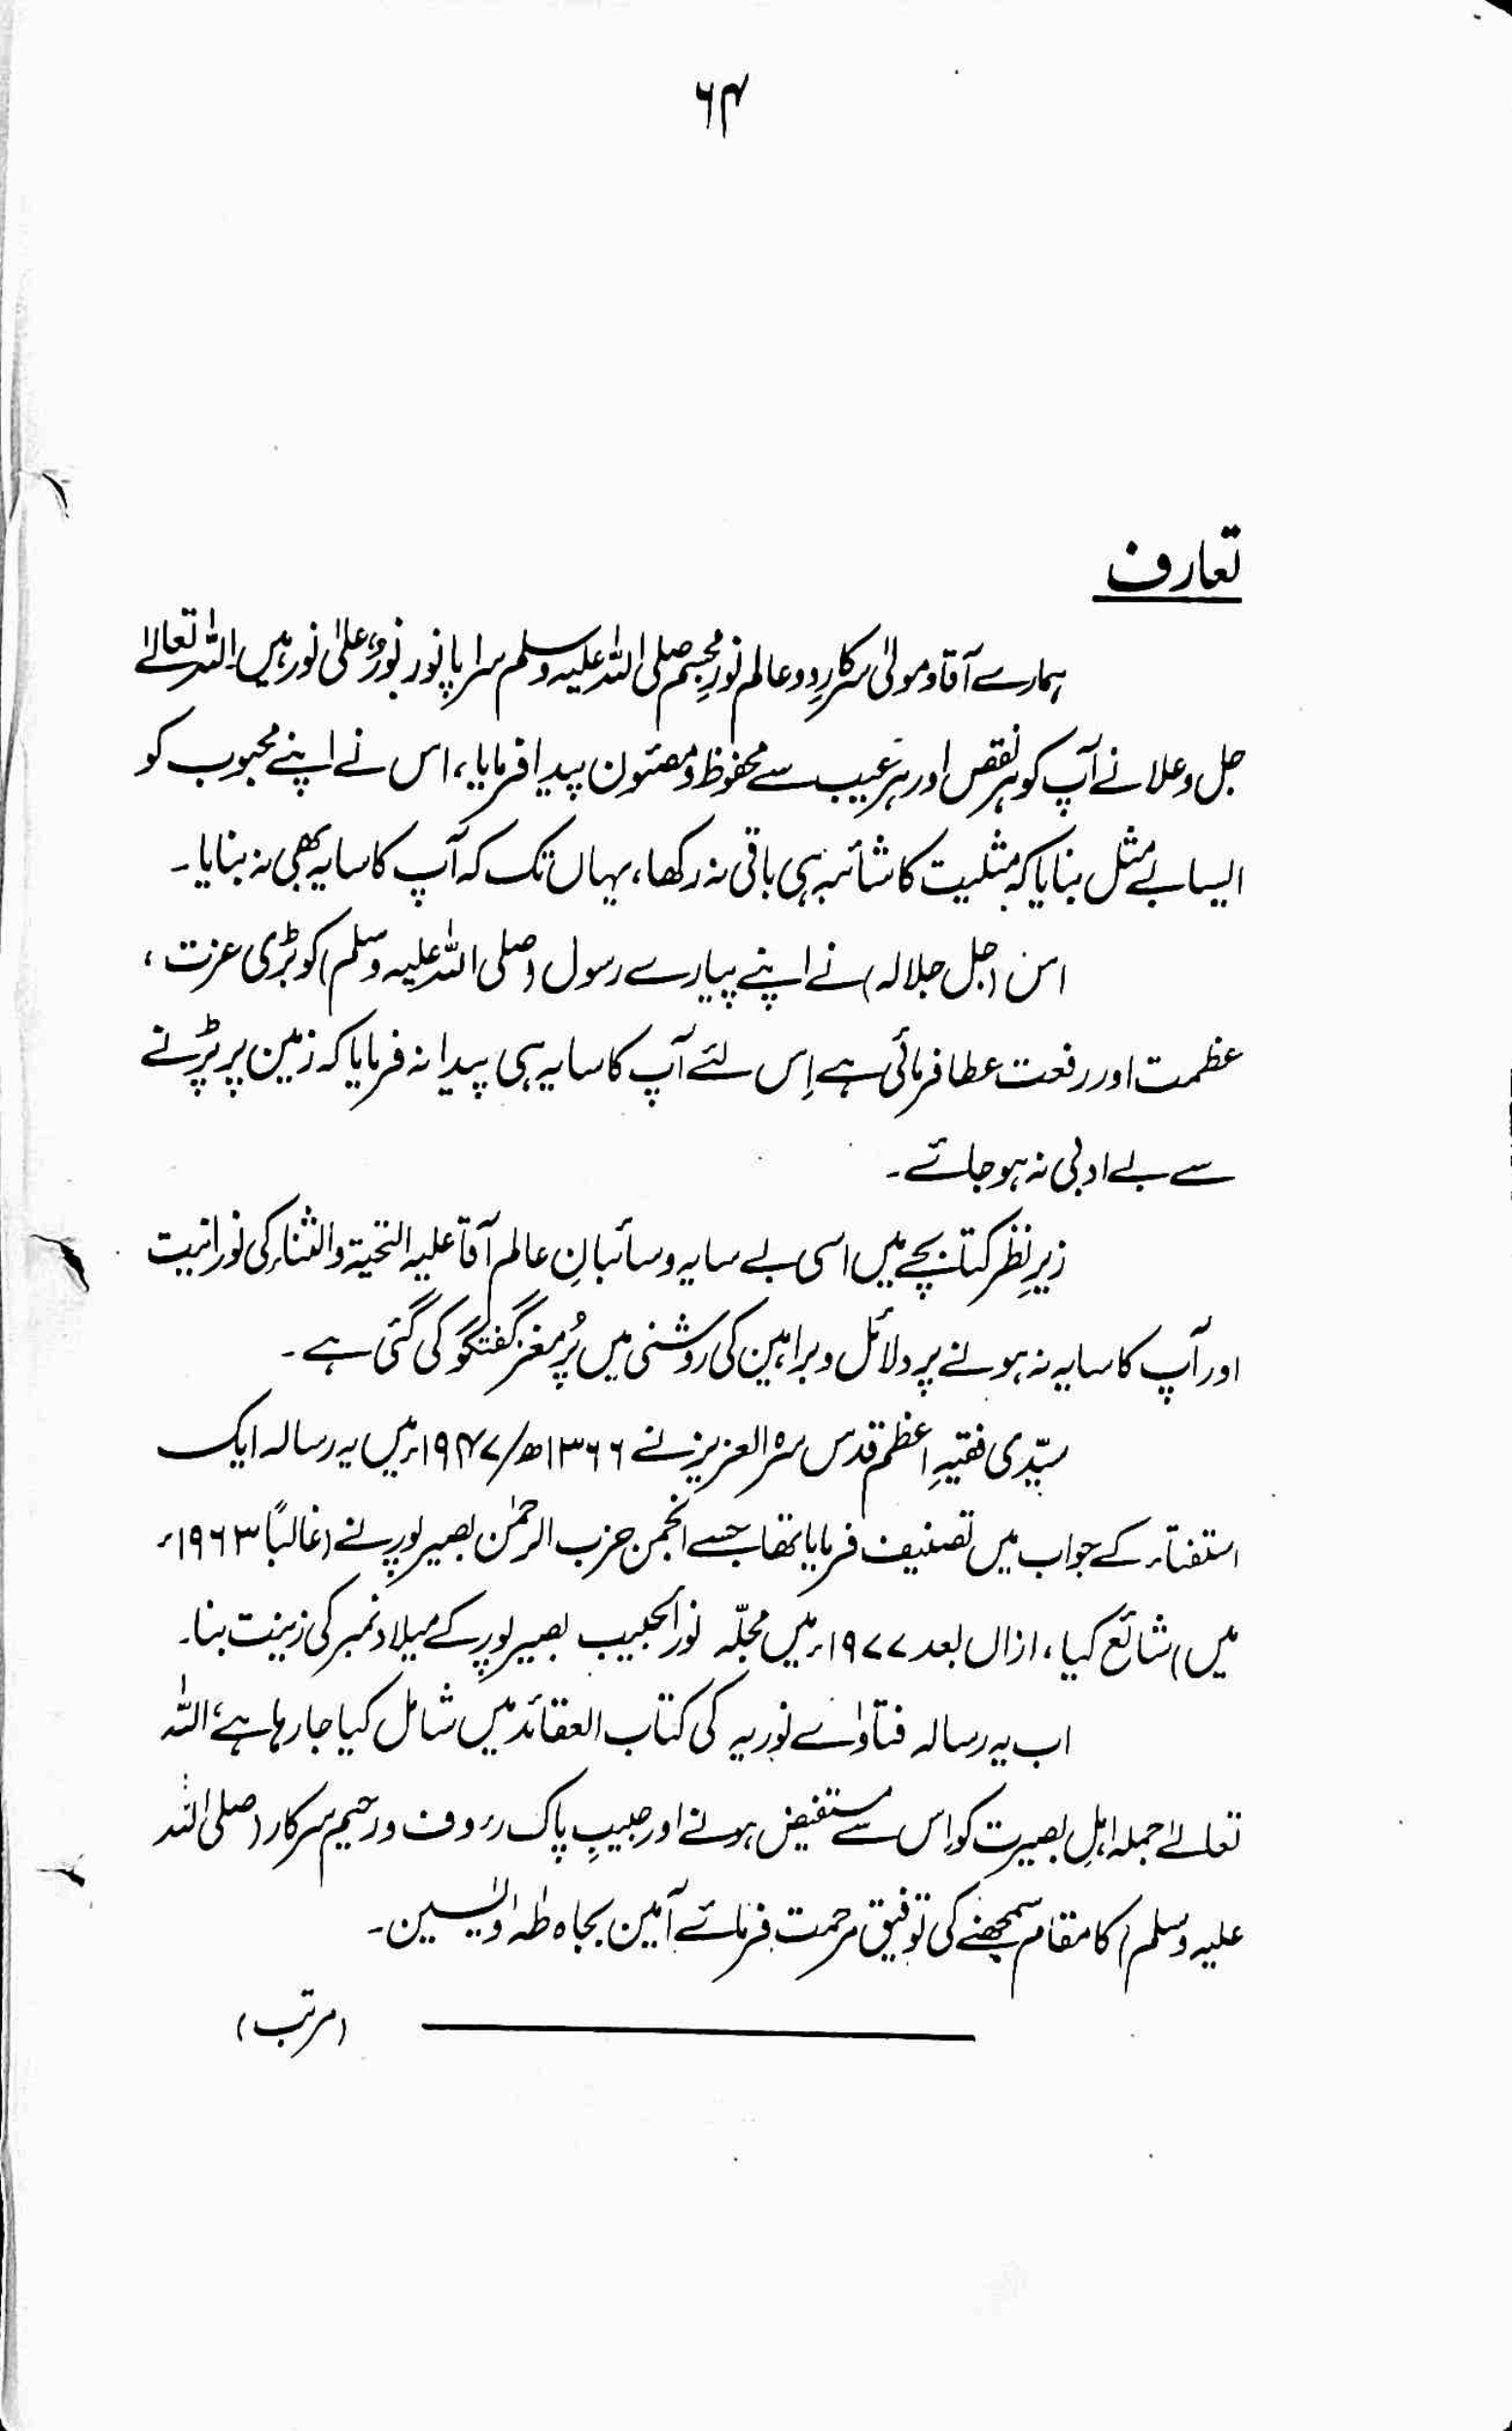 ۶۴
تعارف
ہمارے آقا و مولیٰ سرکارِ دو عالم نورِ مجسم صلی اللہ علیہ وسلم سراپا نور، نورٌ علیٰ نور ہیں اللہ تعالےٰ
جل وعلا نے آپ کو ہر نقص اور ہر عیب سے محفوظ و مصئون پیدا فرمایا، اس نے اپنے محبوب کو
ایسا بے مثل بنایا کہ مثلیت کا شائبہ ہی باقی نہ رکھا، یہاں تک کہ آپ کا سایہ بھی نہ بنایا۔
اس (جل جلالہ) نے اپنے پیارے رسول (صلی اللہ علیہ وسلم) کو بڑی عزت،
عظمت اور رفعت عطا فرمائی ہے اِس لئے آپ کا سایہ ہی پیدا نہ فرمایا کہ زمین پر پڑنے
سے بے ادبی نہ ہو جائے۔
زیرِ نظر کتابچے میں اسی بے سایہ و سائبانِ عالم آقا علیہ التحیۃ والثناء کی نورانیت
اور آپ کا سایہ نہ ہونے پر دلائل و براہین کی روشنی میں پُر مغز گفتگو کی گئی ہے۔
سیّدی فقیہِ اعظم قدس سرہ العزیز نے ۱۳۶۶ھ/۱۹۴۷ء میں یہ رسالہ ایک
استفتاء کے جواب میں تصنیف فرمایا تھا جسے انجمن حزب الرحمٰن بصیر پور نے (غالباً ۱۹۶۳ء
میں) شائع کیا، ازاں بعد ۱۹۷۷ء میں مجلّہ نور الحبیب بصیر پور کے میلاد نمبر کی زینت بنا۔
اب یہ رسالہ فتاوٰے نوریہ کی کتاب العقائد میں شامل کیا جا رہا ہے، اللہ
تعالےٰ جملہ اہلِ بصیرت کو اِس سے مستفیض ہونے اور حبیبِ پاک رءوف و رحیم سرکار (صلی اللہ
علیہ وسلم) کا مقام سمجھنے کی توفیق مرحمت فرمائے آمین بجاہ طٰہٰ و یٰسین۔
(مرتب)